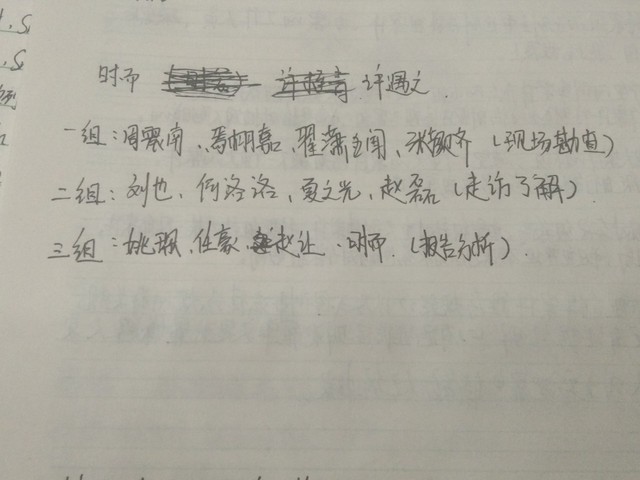 时而 许遇文
一组：周震南、焉栩嘉、翟潇闻、张颜齐（现场勘查）
二组：刘也、何洛洛、夏之光、赵磊（走访了解）
三组：姚琛、任豪、赵让、明 （报告分析）.